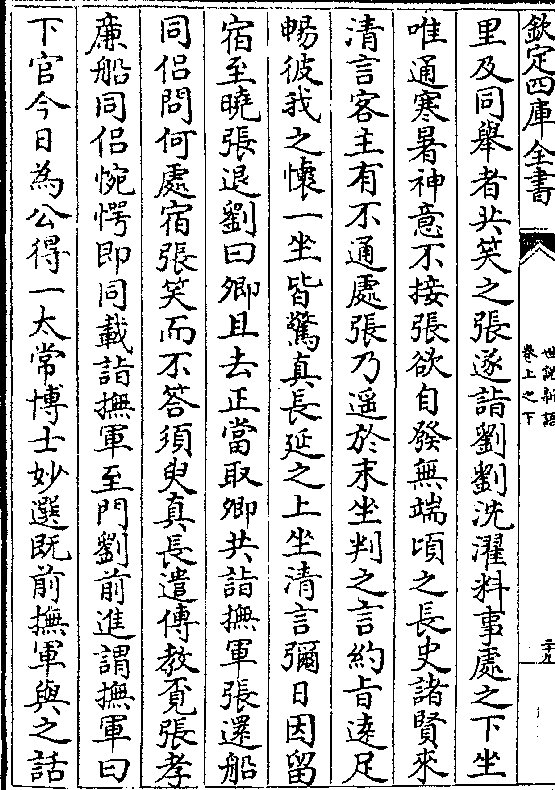 欽定四庫全書
世說新語
卷上之下
里及同舉者共笑之張遂詣劉劉洗濯料事處之下坐
唯通寒暑神意不接張欲自發無端頃之長史諸賢來
清言客主有不通處張乃遥於末坐判之言約旨遠足
暢彼我之懷一坐皆驚真長延之上坐清言彌日因留
宿至曉張退劉曰卿且去正當取卿共詣撫軍張還船
同侶問何處宿張笑而不答須臾真長遣傳教覓張孝
廉船同侶惋愕即同載詣撫軍至門劉前進謂撫軍曰
下官今日為公得一太常博士妙選既前撫軍與之話